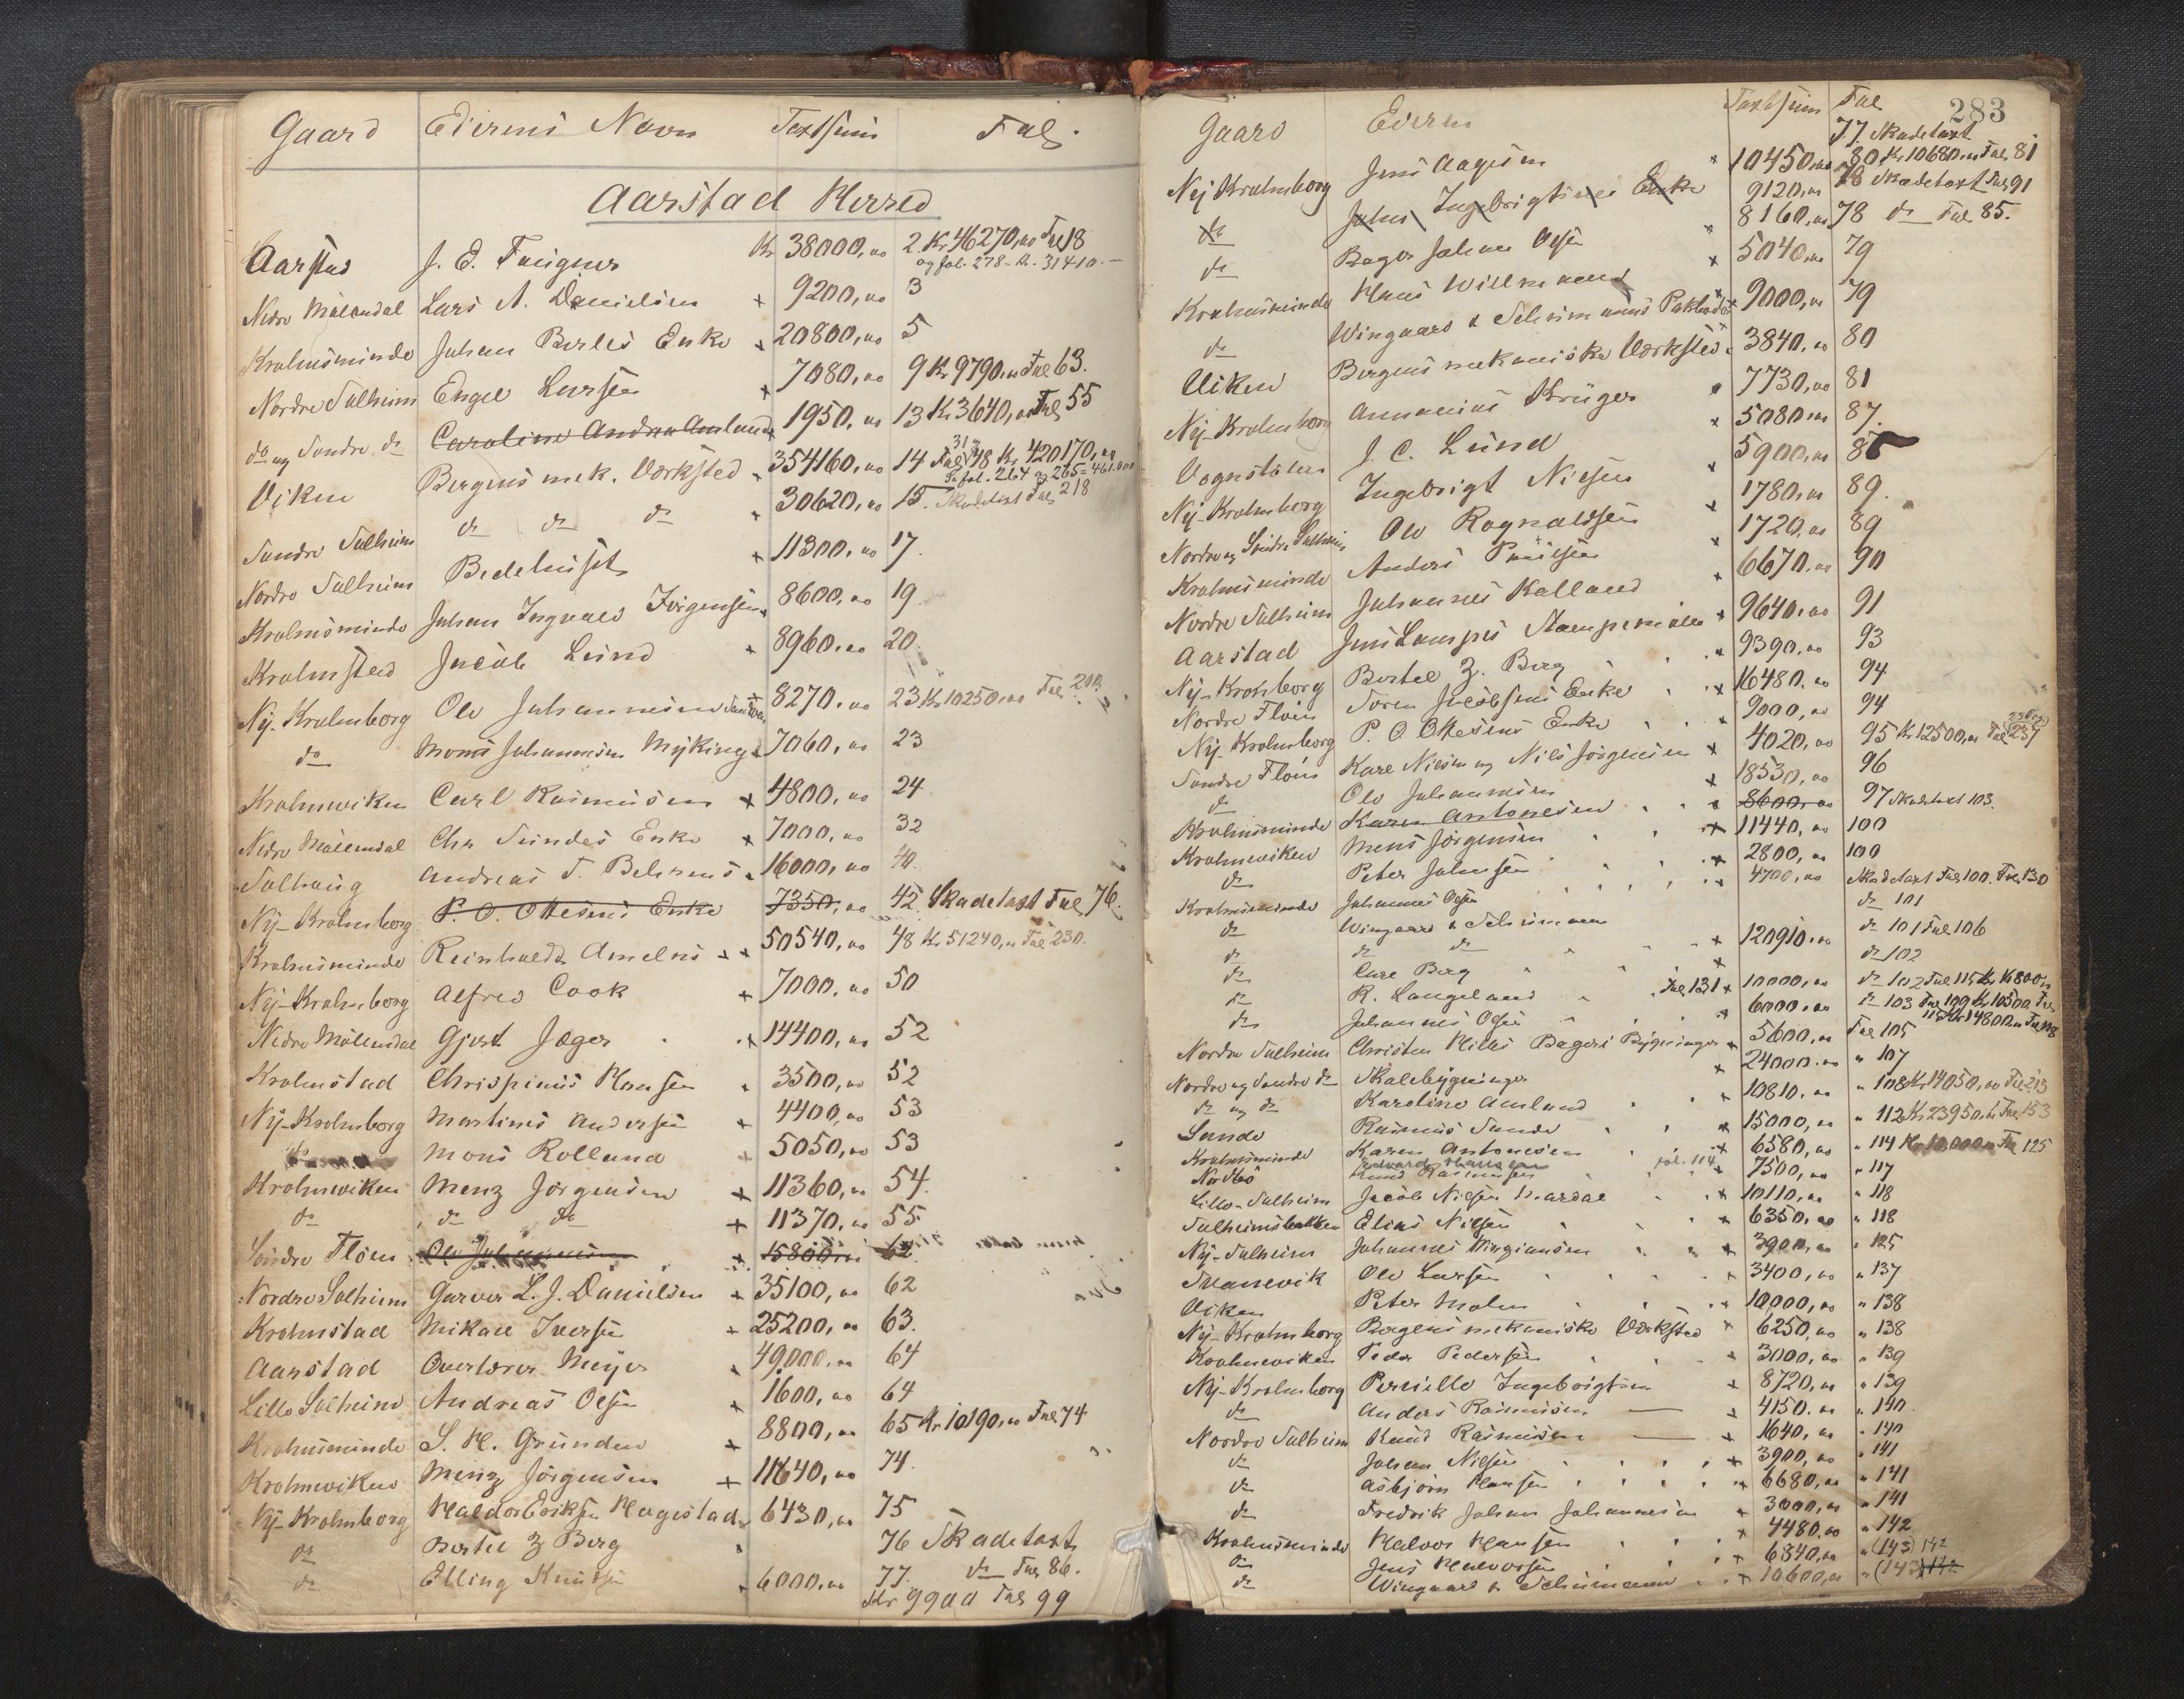 Gaard Eierens Navn Taxtsum Fol.
Aarstad Herred
Aarstad J. E. Faugner Kr 38000,00 2 Kr 46270,00 Fol 18
og fol. 278 - Kr. 31410.-
Nedre Möllendal Lars A. Danielsen x 9200,00 3
Krohnsminde Johan Berles Enke x 20800,00 5
Nordre Solheim Engel Larsen x 7080,00 9 Kr 9790,00 Fol 63.
do og Söndre do Caroline Andrea Amland x 1950,00 13 Kr 3640,00 Fol 55
Viken Bergens mek. Værksted x 354160,00 14 Fol 48 Kr 420170,00
Se fol. 264 og 265 = 461.000
Söndre Solheim do do do x 30620,00 15. Skadetaxt Fol 218
Nordre Solheim Bedehuset x 11300,00 17.
Krohnsminde Johan Ingvald Jörgensen x 8600,00 19.
Krohnsted Jacob Lund x 8960,00 20
Ny-Krohnborg Ole Johannesen x 8270,00 23 Kr 10250,00 Fol
do Mons Johannesen Myking x 7060,00 23
Krohnviken Carl Rasmussen x 4800,00 24
Nedre Möllendal Chr Sundes Enke x 7000,00 32
Solhaug Andreas T. Behrens x 16000,00 40.
Ny-Krohnborg P. O. Ottesens Enke 7350,00 42 Skadetaxt Fol 76.
Krohnsminde Reinholdt Amelns x x 50540,00 48 Kr 51240,00 Fol 230.
Ny-Krohnborg Alfred Cook x 7000,00 50
Nedre Möllendal Gjert Jæger x 14400,00 52
Krohnstad Chrispinus Hansen x 3500,00 52
Ny-Krohnborg Martinus Andersen x 4400,00 53
Mons Rolland x 5050,00 53
Krohnviken Menz Jörgensen x 11360,00 54.
do do do x 11370,00 55
Söndre Floen Ole Johannesen x 15800,00 62
Nordre Solheim Garver L. J. Danielsen x 35100,00 62
Krohnstad Mikael Iversen x 25200,00 63.
Aarstad Overlærer Meyer x 49000,00 64
Lille Solheim Andreas Olsen x 1600,00 64
Krohnsminde S. H. Grunden x 8800,00 65 Kr 10190,00 Fol 74
Krohnviken Menz Jörgensen x 11640,00 74.
Ny-Krohnborg Haldor Eriksen Hagestad x 6430,00 75
do Bertel Z Berg 76 Skadetaxt
do Elling Knudsen x 6000,00 77. do Fol 86.
Kr 9900 Fol 99
283
Gaard Eieren Taxtsum Fol
77 Skadetaxt
Ny Krohnborg Jens Aagesen x 10450,00 80 Kr 10680,00 Fol 81
do Johs Ingebrigtsens Enke 9120,00 78 Skadetaxt Fol 91
do Bager Johan Olsen x 8160,00 78 do Fol 85.
Krohnsminde Hans Willmann x 5040,00 79
do Wingaard & Schumanns Pakboder x 9000,00 79
Viken Bergens mekaniske Værksted x 3840,00 80
Ny-Krohnborg Annanias Krüger x 7730,00 81
Vognstölen J. C. Lund x 5080,00 87.
Ny-Krohnborg Ingebrigt Nielsen x 5900,00
Nordre og Söndre Solheim Ole Rognaldsen x 1780,00 89.
Krohnsminde Anders Paulsen x 1720,00 89
Nordre Solheim Johannes Kalland x 6670,00 90
Aarstad Jens Lampes Stampemölle x 9640,00 91
Ny-Krohnborg Bertel Z. Berg x 9390,00 93
Nordre Floen Sören Jacobsens Enke x 16480,00 94
Ny-Krohnborg P. O Ottesens Enke x 9000,00 94
Söndre Floen Karl Nielsen og Nils Jörgensen x 4020,00 95 Kr 12500,00 Fol 237
do Ole Johannesen x 18530,00 96
Krohnsminde Karen Antonesen x 8600,00 97 Skadetaxt 103.
Krohnviken Mens Jörgensen x 11440,00 100
do Peter Johnsen x 2800,00 100
Krohnsminde Johannes Olsen x 4700,00 Skadetaxt Fol 100. Fol 130
do Wingaard & Schumann do 101
do do do x 120910,00 do 101 Fol 106
do Carl Berg x do 102
do R. Langeland Fol 131 x 10000,00 do 102 Fol 115 Kr 16800,00
do Johannes Olsen x 6000,00 do 103 Fol 109 Kr 10500 Fol
115 Kr 14800,00 Fol 118
Nordre Solheim Christen Hilles Bageri Bygninger x 5600,00 Fol 105
Nordre og Söndre do Skolebygninger x 24000,00 " 107
do og do Karoline Amland x 10810,00 " 108 Kr 14050,00 Fol 213
Sande Rasmus Sande x 15000,00 " 112 Kr 23950,00 Fol 153
Krohnsminde Karen Antonesen x 6580,00 " 114 Kr 10,000,00 Fol 125
Nordbö Knud Rasmussen fol. 114 x 7500,00 " 117
Lille-Solheim Jacob Nielsen Haardal x 10110,00 " 118
Solheimsbakken Elias Nielsen x 6350,00 " 118
Ny-Solheim Johannes Mangiansen x 3900,00 " 125
Solanevik Ole Larsen x 3400,00 " 137
Viken Peter Malm x 10,000,00 " 138
Ny-Krohnborg Bergens mekaniske Værksted x 6250,00 " 138
Krohnviken Peder Pedersen x 3000,00 " 139
Ny-Krohnborg Pernille Ingebrigtsen x 8720,00 " 139
do Anders Rasmussen x 4150,00 " 140
Nordre Solheim Knud Rasmussen x 1640,00 " 140
do Johan Nielsen x 3900,00 " 141
do Asbjörn Hansen x 6680,00 " 141
do Fredrik Johan Johannesen x 3600,00 " 141
Krohnsminde Halvor Hansen x 4480,00 " 142
do Jens Halvorsen x 6840,00 " (143) 142
do Wingaard & Schumann x 10600,00 " (143) 142